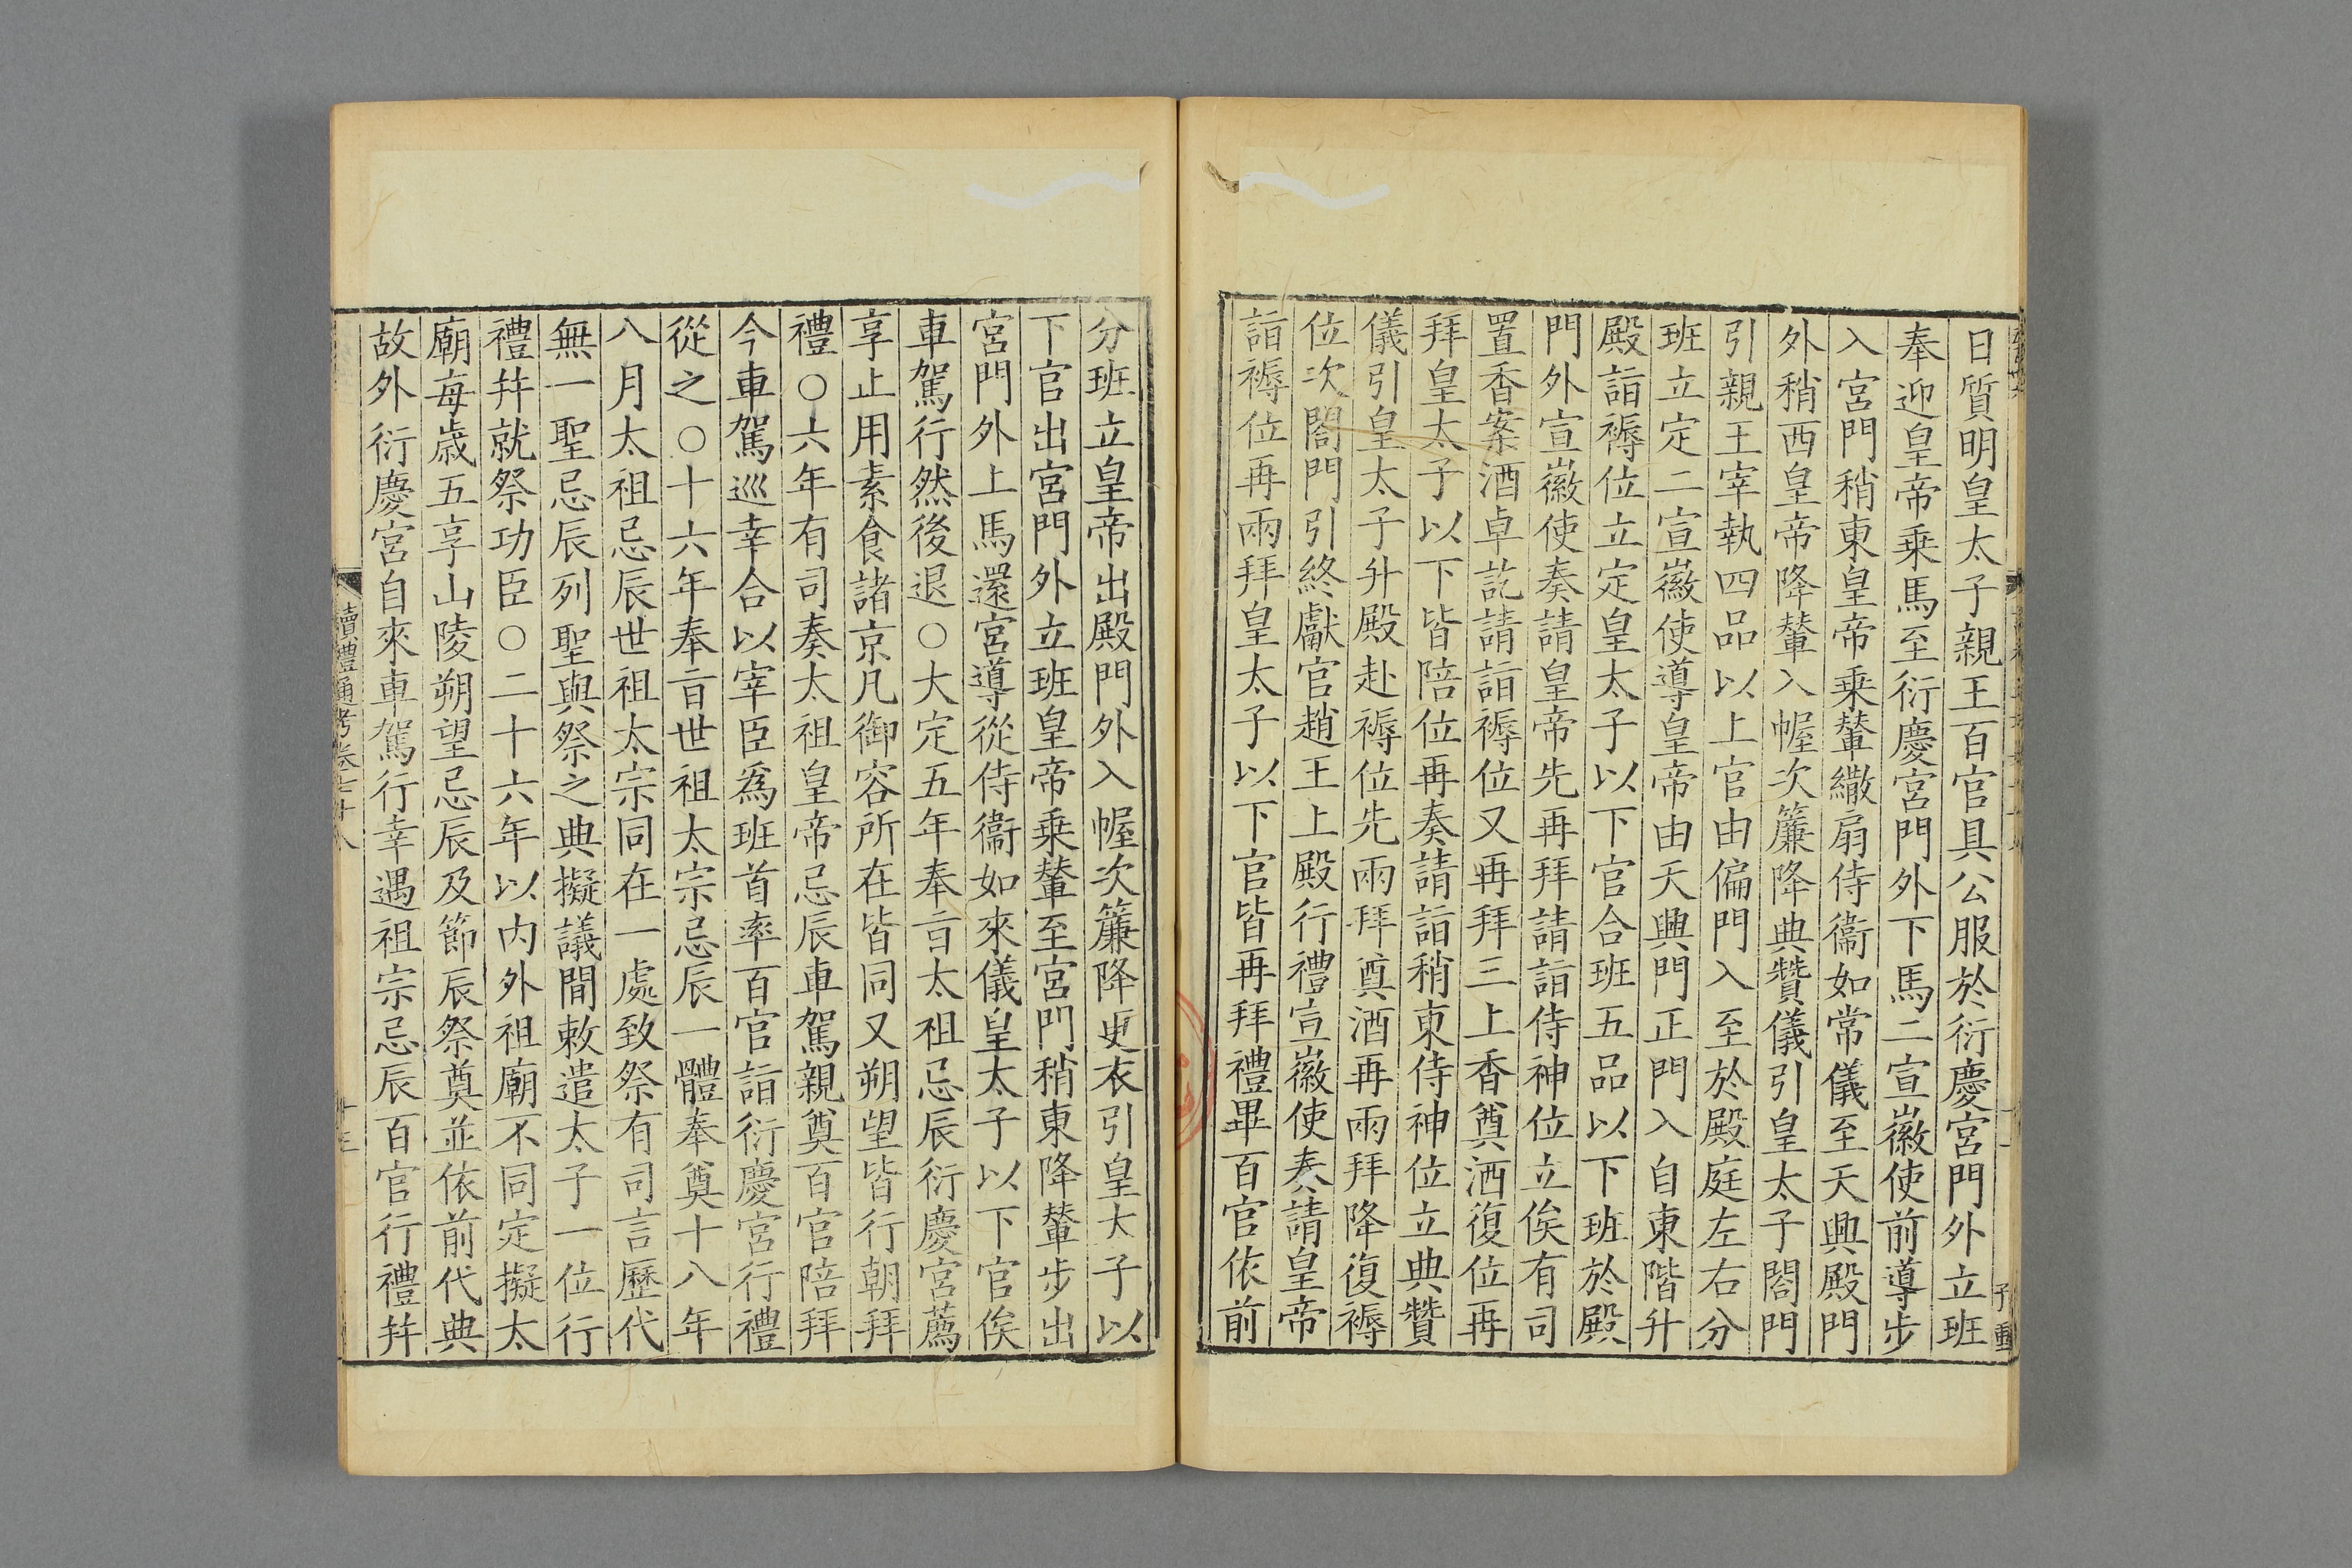 日質明皇太子親王百官具公服於衍慶宮門外立班
奉迎皇帝乗馬至衍慶宮門外下馬二宣徽使前導步
入宮門稍東皇帝乗輦繖扇侍衞如常儀至天興殿門
外稍西皇帝降輦入幄次簾降典贊儀引皇太子閤門
引親王宰執四品以上官由偏門入至於殿庭左右分
班立定二宣徽使導皇帝由天興門正門入自東階升
殿詣褥位立定皇太子以下官合班五品以下班於殿
門外宣徽使奏請皇帝先再拜請詣侍神位立俟有司
置香案酒卓訖請詣褥位又再拜三上香奠酒復位再
拜皇太子以下皆陪位再奏請詣稍東侍神位立典贊
儀引皇太子升殿赴褥位先兩拜奠酒再兩拜降復褥
位次閤門引終獻官趙王上殿行禮宣徽使奏請皇帝
詣褥位再兩拜皇太子以下官皆再拜禮畢百官依前
分班立皇帝出殿門外入幄次簾降更衣引皇太子以
下官出宮門外立班皇帝乗輦至宮門稍東降輦步出
宮門外上馬還宮導從侍衞如來儀皇太子以下官俟
車駕行然後退○大定五年奉㫖太祖忌辰衍慶宮薦
享止用素食諸京凡御容所在皆同又朔望皆行朝拜
禮○六年有司奏太祖皇帝忌辰車駕親奠百官陪拜
今車駕巡幸合以宰臣爲班首率百官詣衍慶宮行禮
從之○十六年奉㫖世祖太宗忌辰一體奉奠十八年
八月太祖忌辰世祖太宗同在一處致祭有司言歷代
無一聖忌辰列聖與祭之典擬議閒敕遣太子一位行
禮幷就祭功臣○二十六年以内外祖廟不同定擬太
廟每歲五享山陵朔望忌辰及節辰祭奠並依前代典
故外衍慶宮自來車駕行幸遇祖宗忌辰百官行禮幷
讀禮通考卷七十八
十三